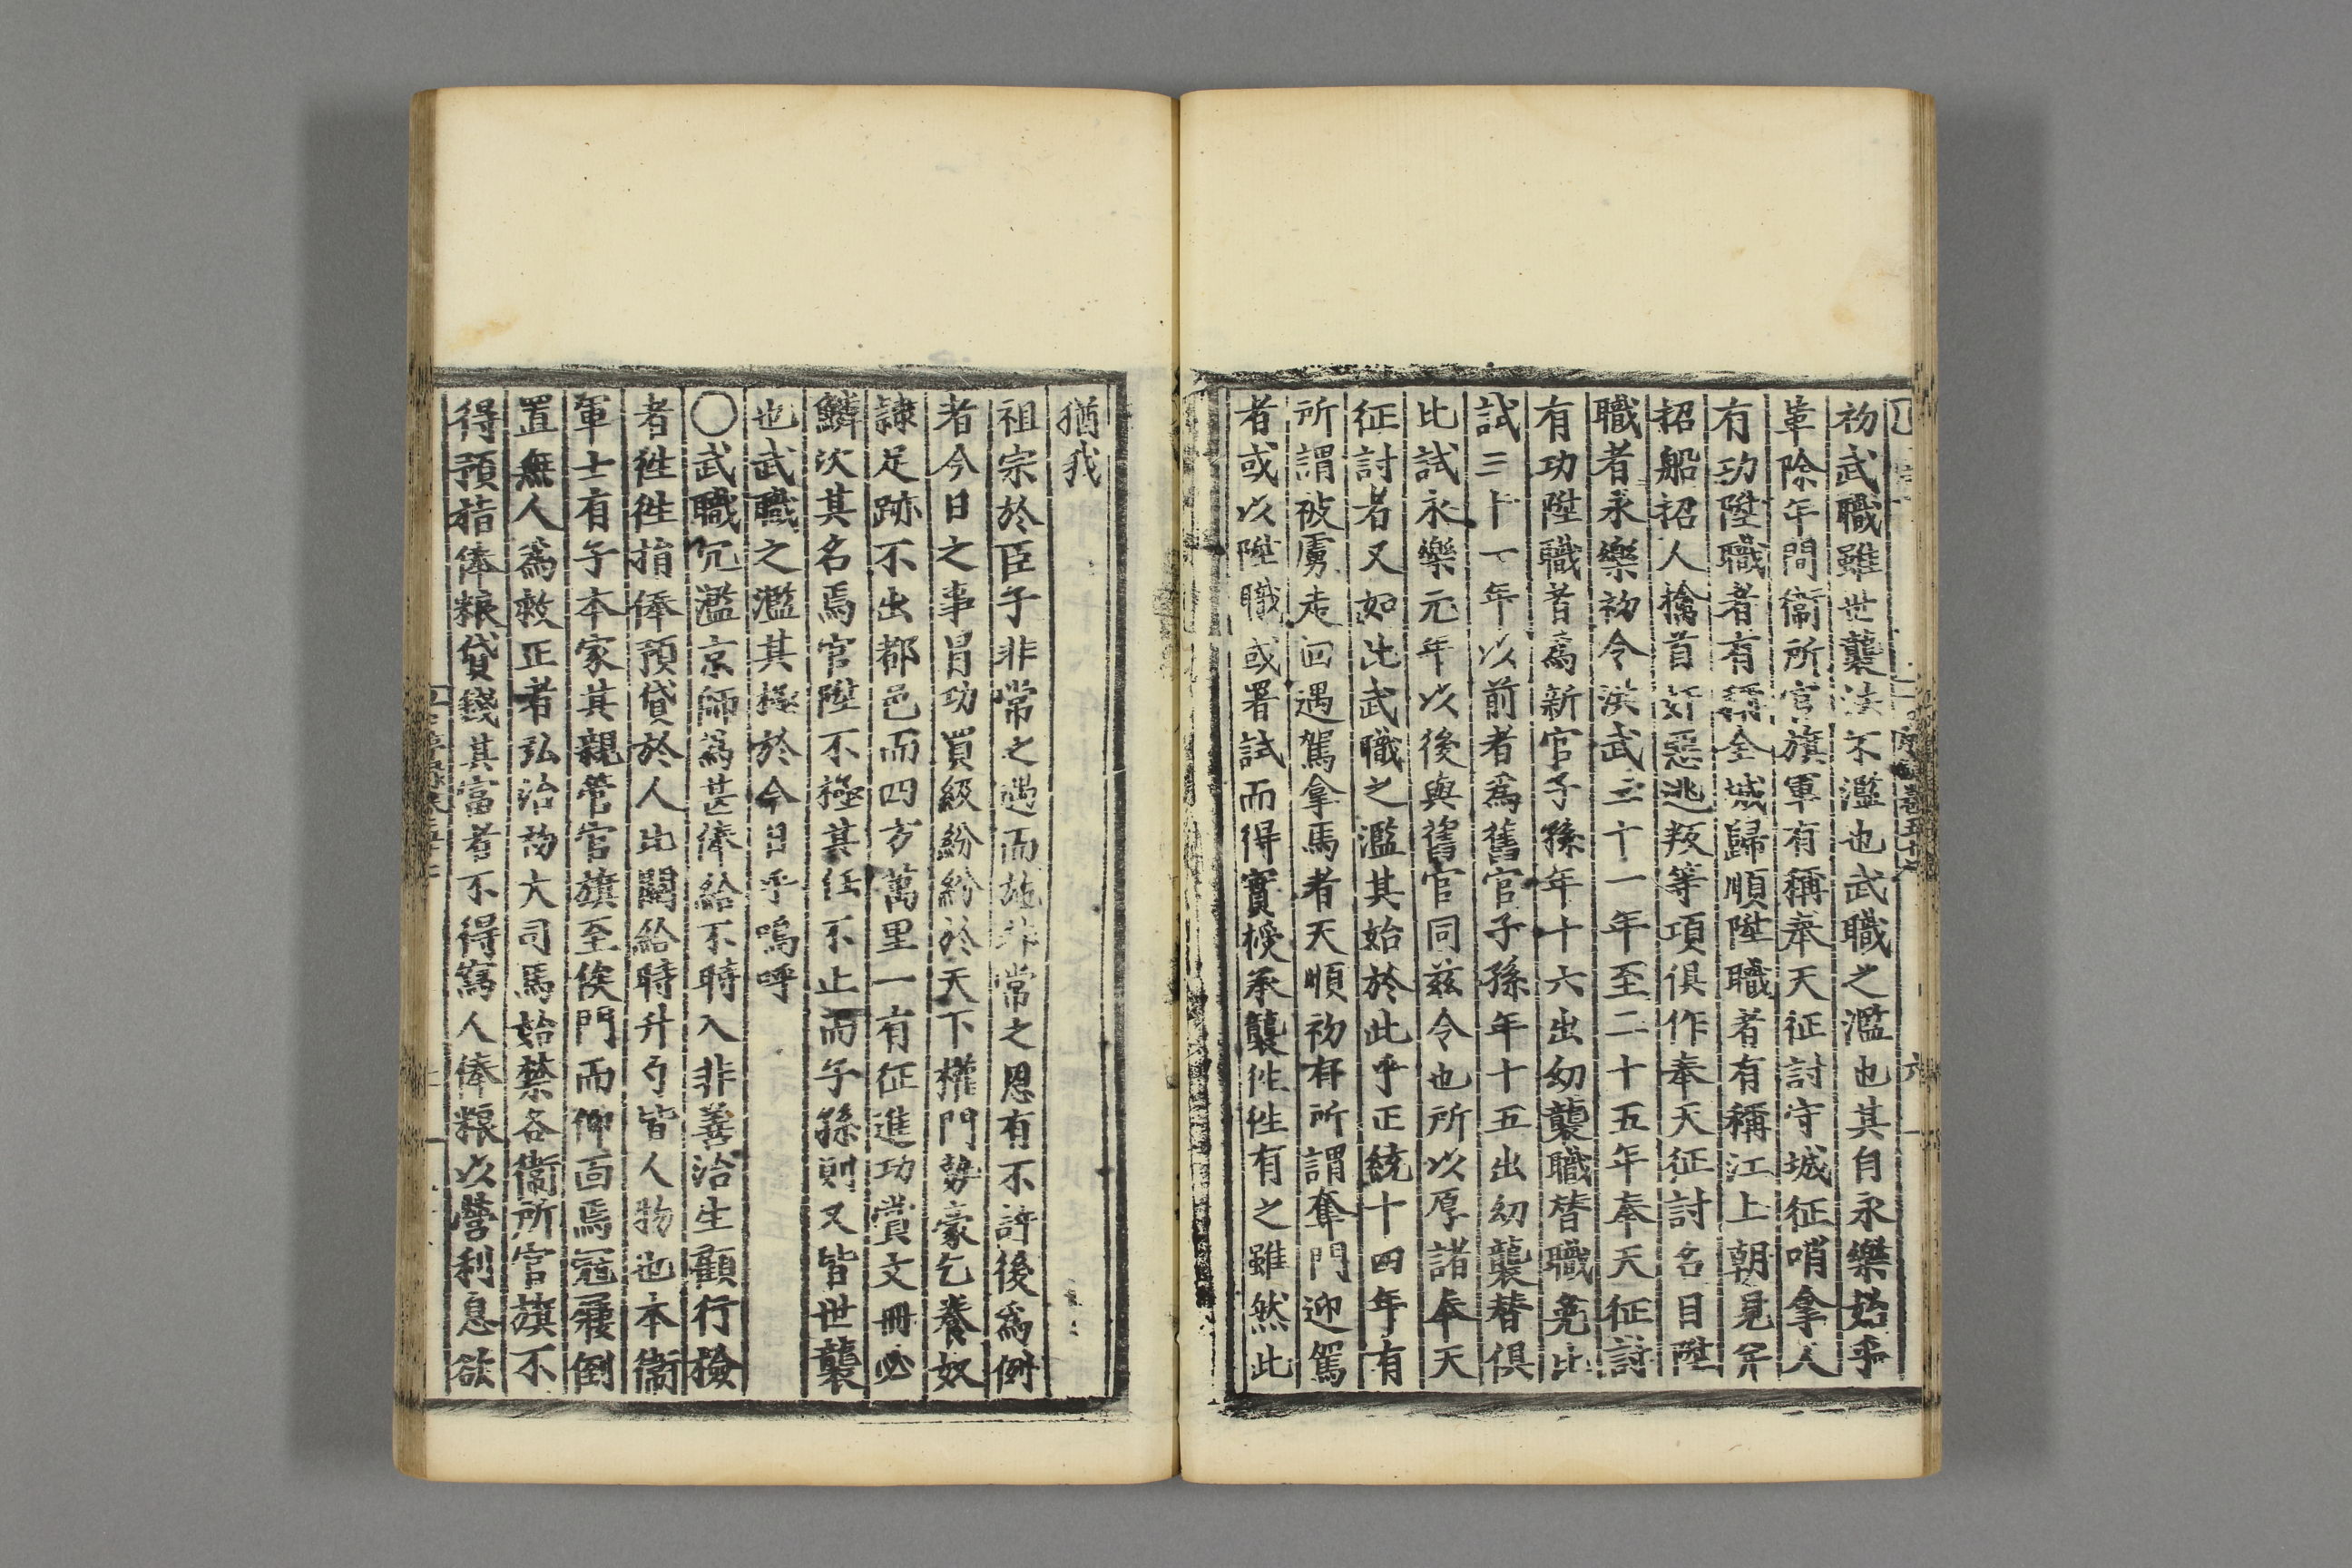 初武職雖世襲法不濫也武職之濫也其自永樂始乎
革除年間衞所官旗軍有稱奉天征討守城征哨拿人
有功陞職者有稱全城歸順陞職者有稱江上朝見并
招船招人擒首奸惡逃叛等項俱作奉天征討名目陞
職者永樂初令洪武三十一年至二十五年奉天征討
有功陞職者爲新官子孫年十六出幼襲職替職免比
試三十一年以前者爲舊官子孫年十五出幼襲替俱
比試永樂元年以後與舊官同兹令也所以厚諸奉天
征討者又如此武職之濫其始於此乎正統十四年有
所謂被虜走回遇駕拿馬者天順初有所謂奪門迎駕
者或以陞職或署試而得實授承襲徃徃有之雖然此
猶我
祖宗於臣子非常之遇而施非常之恩有不許後爲例
者今日之事冒功買級紛紛於天下權門勢豪乞養奴
隷足跡不出都邑而四方萬里一有征進功賞文冊必
鱗次其名焉官陞不極其任不止而子孫則又皆世襲
也武職之濫其極於今日乎嗚呼
○武職冗濫京師爲甚俸給不時入非善治生顧行檢
者徃徃指俸預貸於人比關給時升勺皆人物也本衞
軍士有子本家其親管官旗至俟門而仰面焉冠履倒
置無人爲救正者弘治初大司馬始禁各衞所官旗不
得預指俸粮貸錢其富者不得寫人俸粮以營利息欲